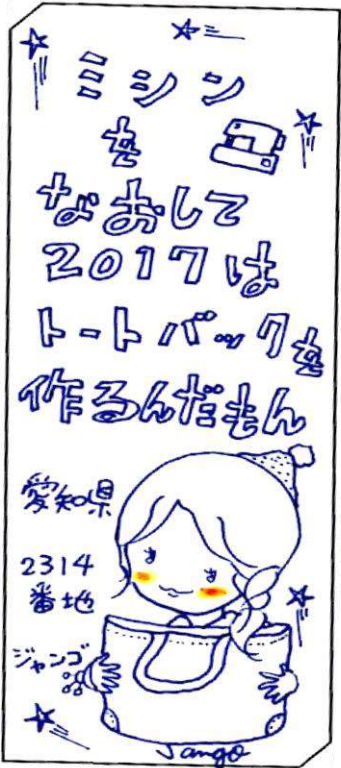 ミシン
を
なおして
2017は
トートバックを
作るんだもん
愛知県
2314
番地
ジャンゴ
Jango